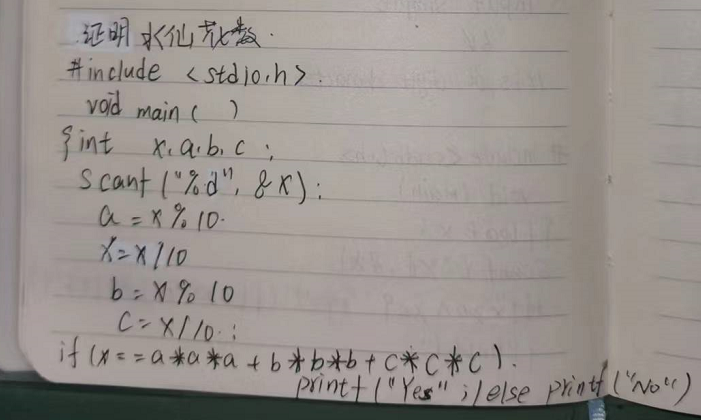 证明水仙花数.
#include <stdio.h>
void main ( )
{int x,a,b,c ;
scanf ("%d", &x);
a = x % 10.
x=x/10
b = x % 10
c = x/10.;
if (x==a*a*a + b*b*b + c*c*c).
printf ("Yes" ;) else printf ("No")